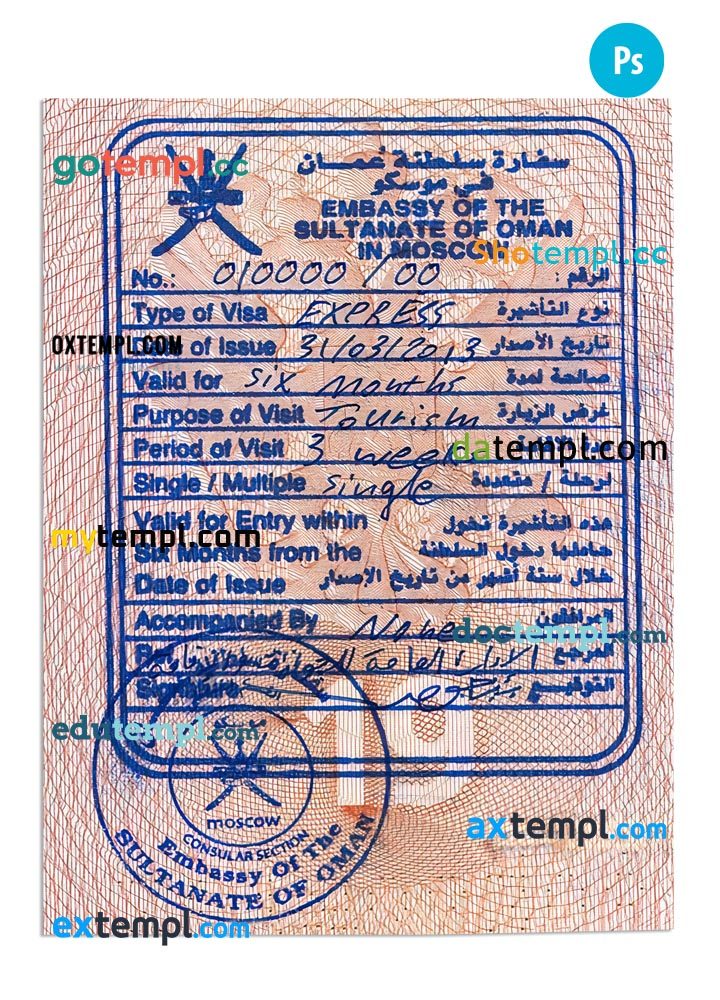 Ps
gotempl.cc
سفارة سلطنة عُمان
في موسكو
EMBASSY OF THE
SULTANATE OF OMAN
IN MOSCO
Shotempl.cc
No.: 010000/00 الرقم :
Type of Visa EXPRESS نوع التأشيرة
OXTEMPL.COM
of Issue 31/03/2013 تاريخ الأصدار
Valid for six Months صالحة لمدة
Purpose of Visit Tourism غرض الزيارة
Period of Visit 3 week
datempl.com
Single / Multiple single لرحلة / متعددة
Valid for Entry within هذه التأشيرة تخول
mytempl.com
Six Months from the حاملها دخول السلطنة
Date of Issue خلال ستة أشهر من تاريخ الإصدار
Accompanied By None المرافقون
doctempl.com
Signature التوقيع
edutempl.com
MOSCOW
CONSULAR SECTION
Embassy Of The
SULTANATE OF OMAN
axtempl.com
extempl.com